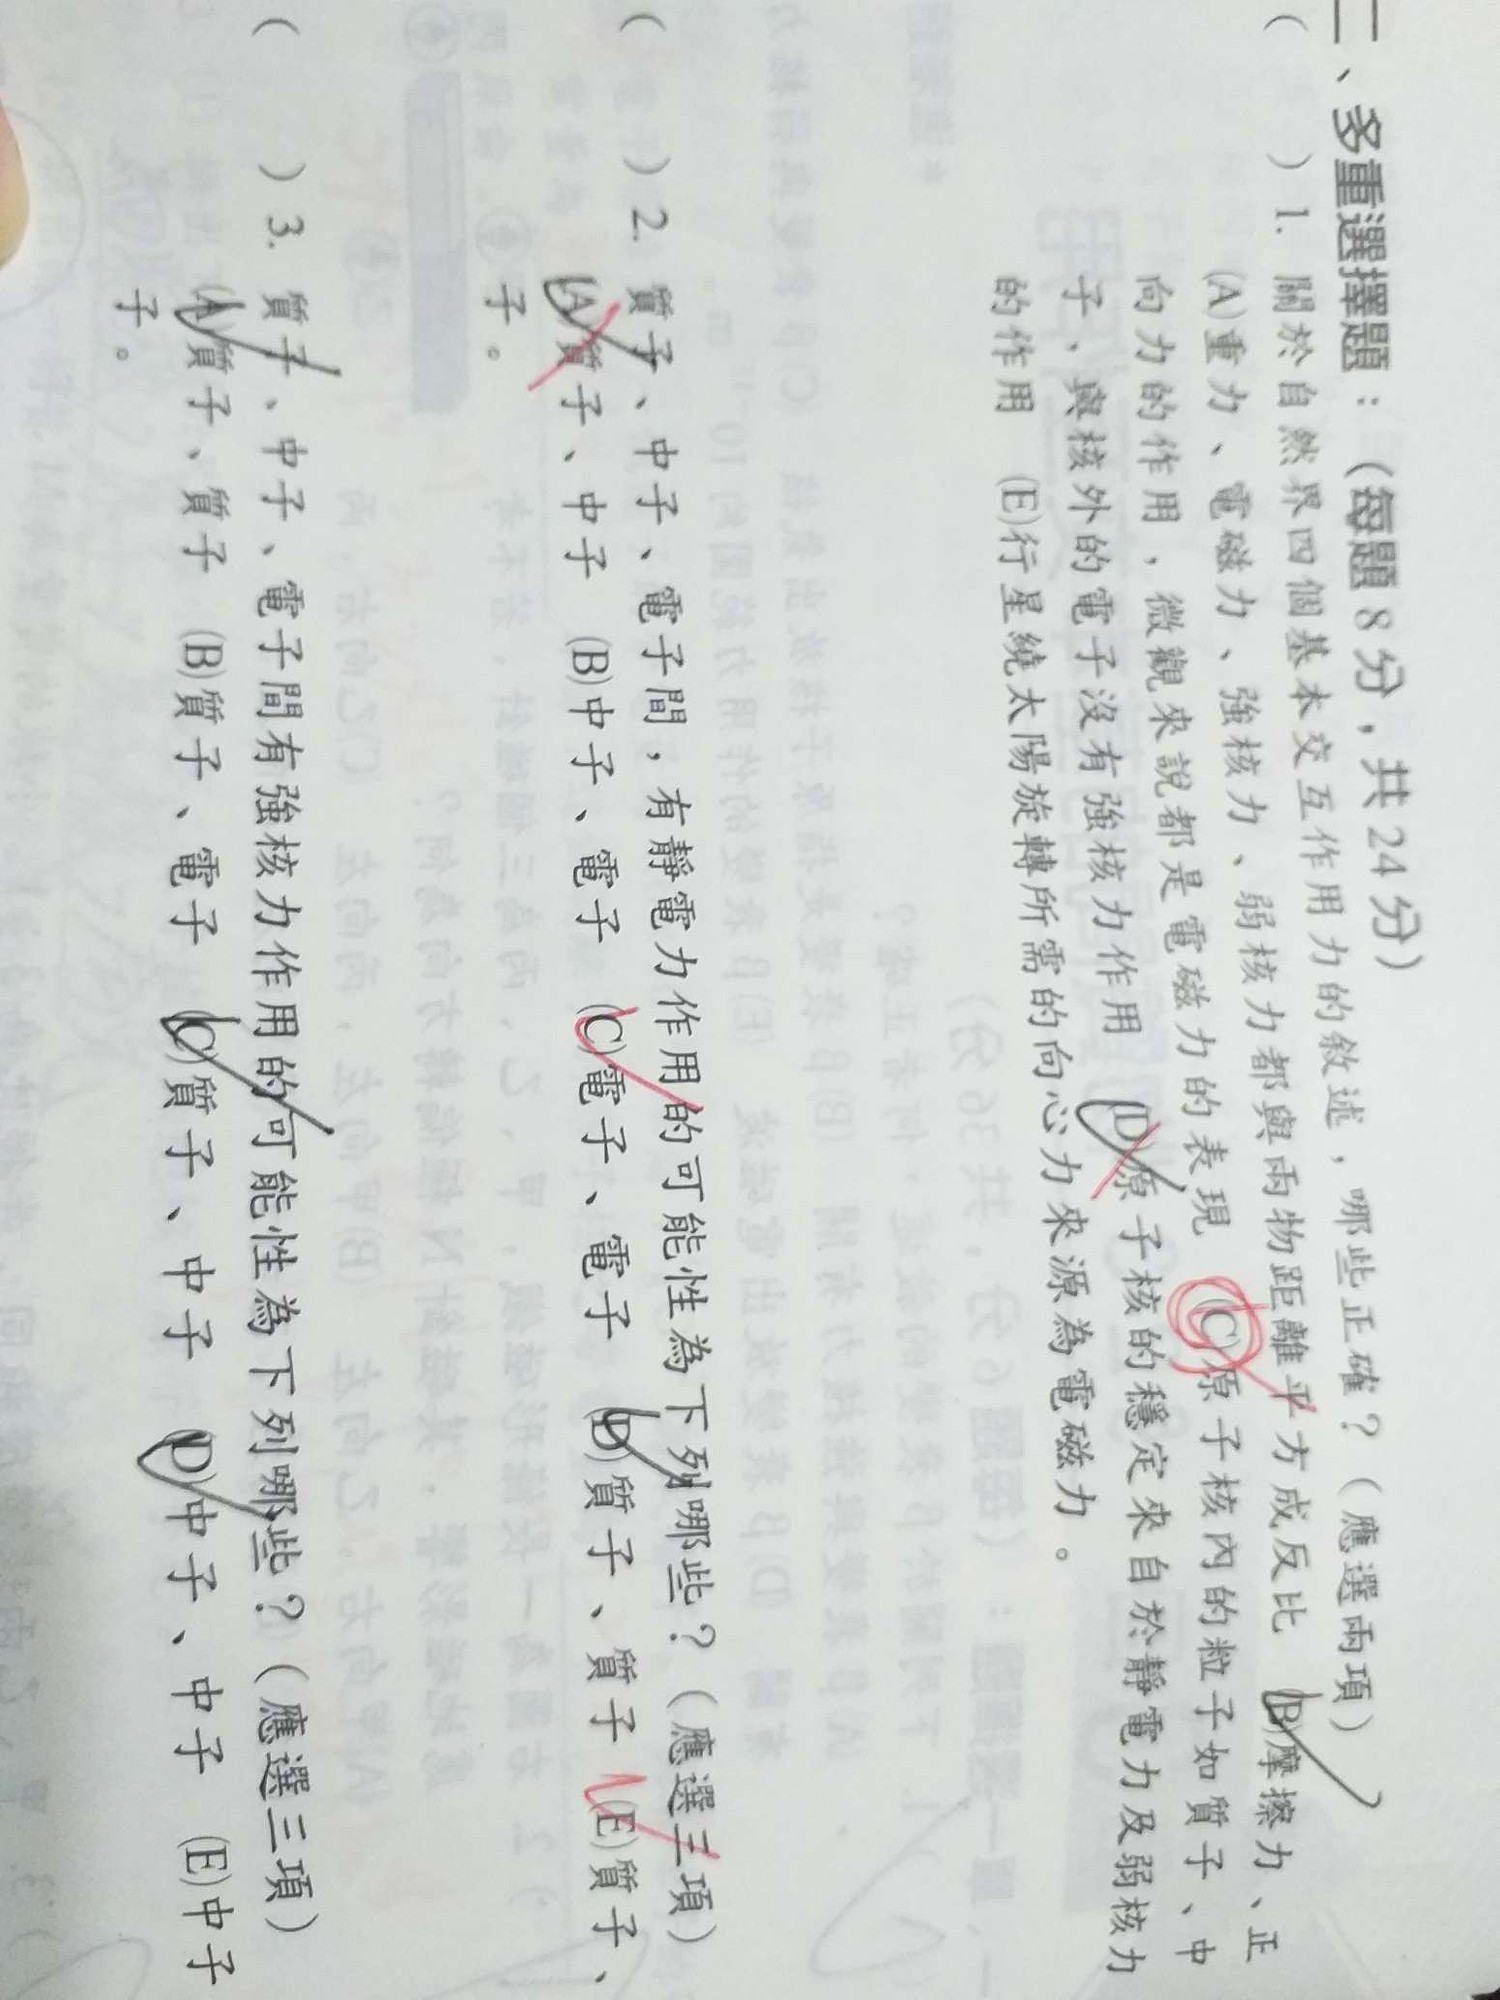 二、多重選擇題：(每題 8 分，共 24 分)
(　) 1. 關於自然界四個基本交互作用力的敘述，哪些正確？(應選兩項)
(A)重力、電磁力、強核力、弱核力都與兩物距離平方成反比 (B)摩擦力、正
向力的作用，微觀來說都是電磁力的表現 (C)原子核內的粒子如質子、中
子，與核外的電子沒有強核力作用 (D)原子核的穩定來自於靜電力及弱核力
的作用 (E)行星繞太陽旋轉所需的向心力來源為電磁力。
(　) 2. 質子、中子、電子間，有靜電力作用的可能性為下列哪些？(應選三項)
(A)質子、中子 (B)中子、電子 (C)電子、電子 (D)質子、質子 (E)質子、
子。
(　) 3. 質子、中子、電子間有強核力作用的可能性為下列哪些？(應選三項)
(A)質子、質子 (B)質子、電子 (C)質子、中子 (D)中子、中子 (E)中子
子。